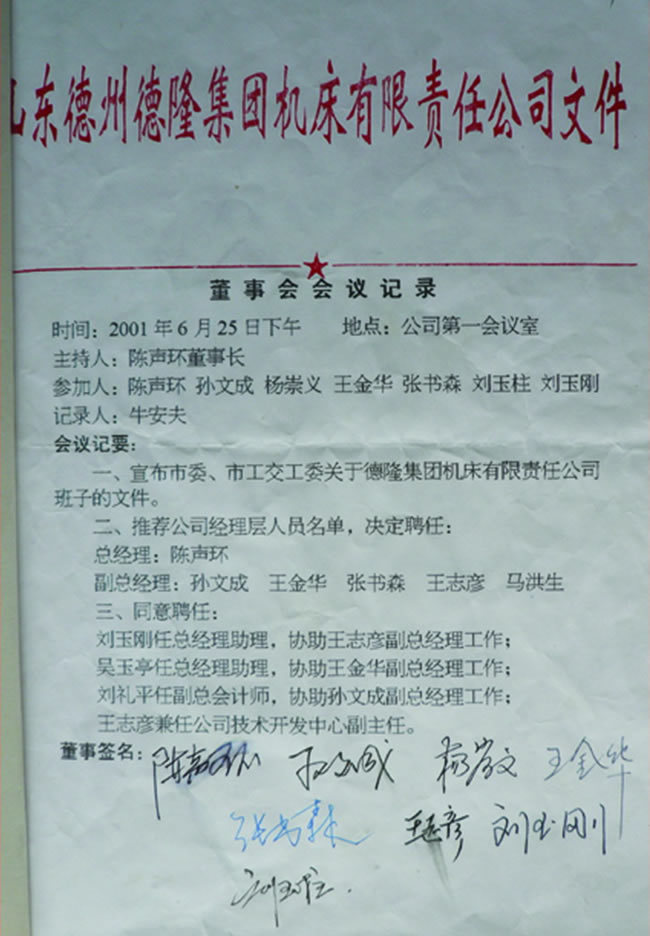 东德州德隆集团机床有限责任公司文件
董事会会议记录
时间：2001年6月25日下午 地点：公司第一会议室
主持人：陈声环董事长
参加人：陈声环 孙文成 杨崇义 王金华 张书森 刘玉柱 刘玉刚
记录人：牛安夫
会议记要：
一、宣布市委、市工交工委关于德隆集团机床有限责任公司
班子的文件。
二、推荐公司经理层人员名单，决定聘任：
总经理：陈声环
副总经理：孙文成 王金华 张书森 王志彦 马洪生
三、同意聘任：
刘玉刚任总经理助理，协助王志彦副总经理工作；
吴玉亭任总经理助理，协助王金华副总经理工作；
刘礼平任副总会计师，协助孙文成副总经理工作；
王志彦兼任公司技术开发中心副主任。
董事签名：陈声环 孙文成 王金华
张书森 王志彦 刘玉刚
刘玉柱